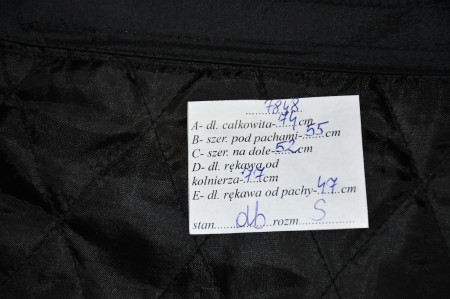 7848
A- dł. całkowita- 74 cm
B- szer. pod pachami- 55 cm
C- szer. na dole- 52 cm
D- dł. rękawa od
kołnierza- 77 cm
E- dł. rękawa od pachy- 47 cm
stan db rozm S